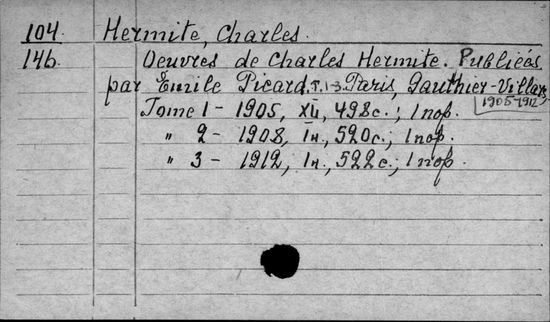 104 Hermite, Charles.
146 Oeuvres de Charles Hermite. Publiées
par Emile Picard. T. 1-3. Paris, Gauthier-Villars,
1905-1912
Tome 1 - 1905, XII, 498 с.; 1 пор.
" 2 - 1908, 520 с.; 1 пор.
" 3 - 1912, 522 с.; 1 пор.